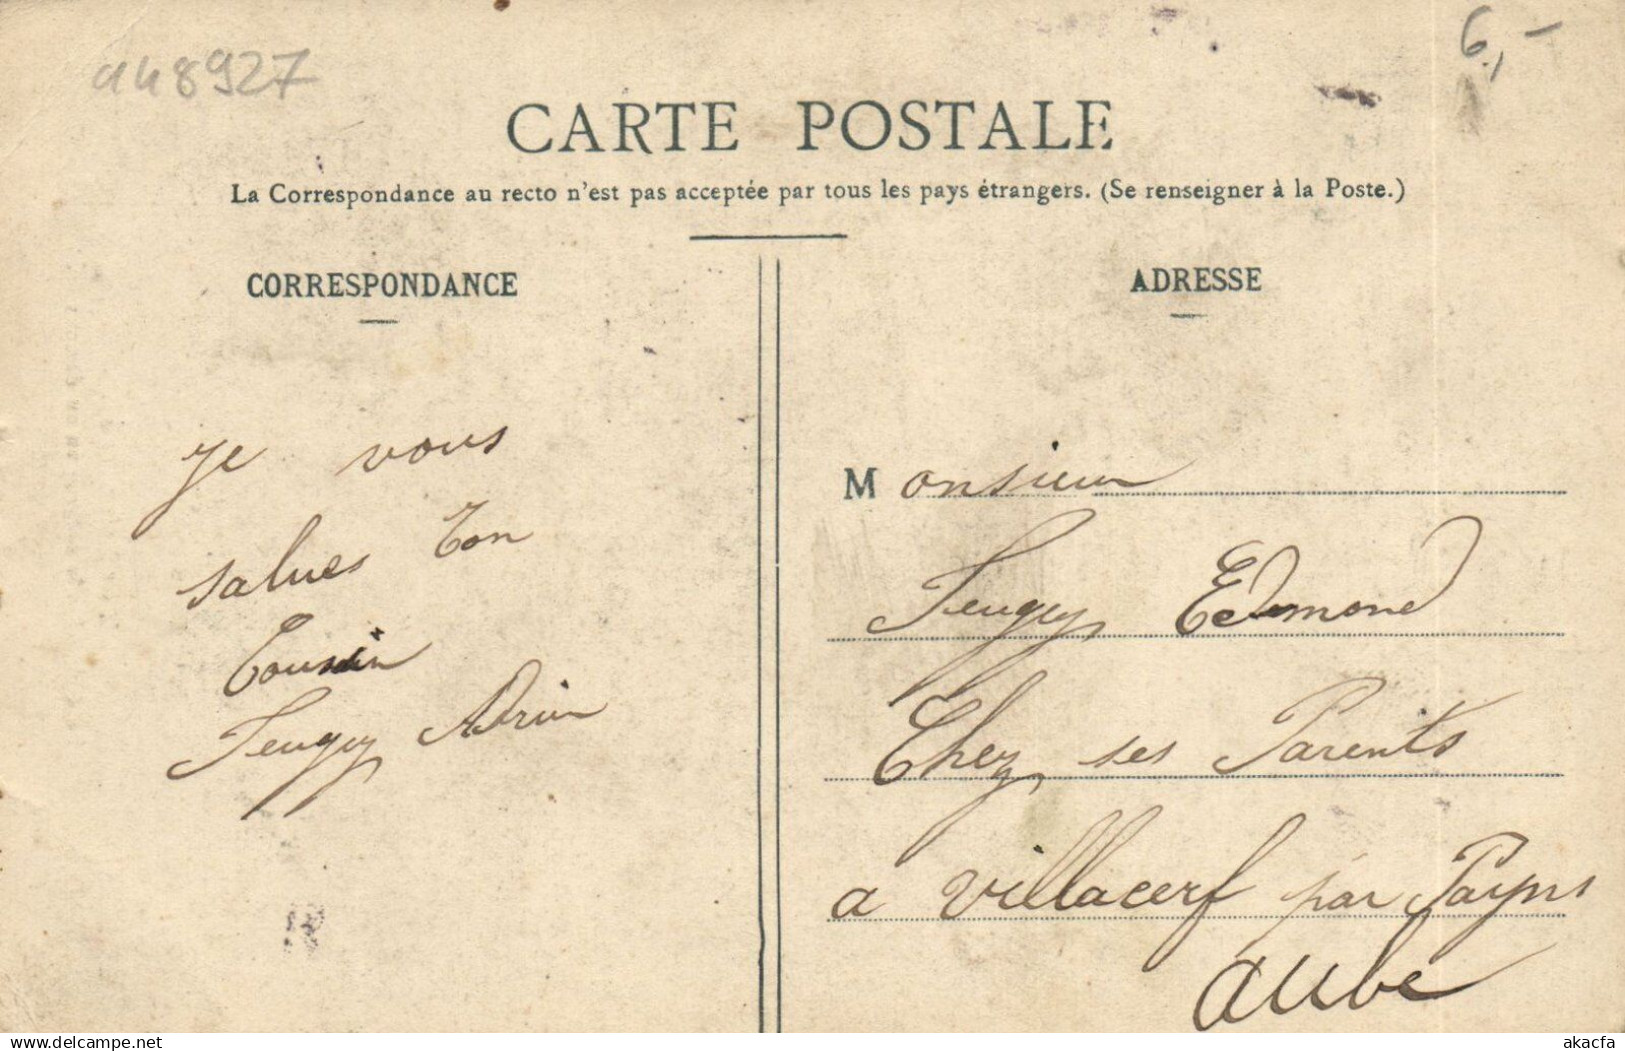 a48927
6,-
CARTE POSTALE
La Correspondance au recto n'est pas acceptée par tous les pays étrangers. (Se renseigner à la Poste.)
CORRESPONDANCE
je vous
salues ton
Cousin
Feugey Adrien
ADRESSE
Monsieur
Feugey Edmond
Chez ses Parents
a villacerf par Payns
aube
www.delcampe.net
akacfa